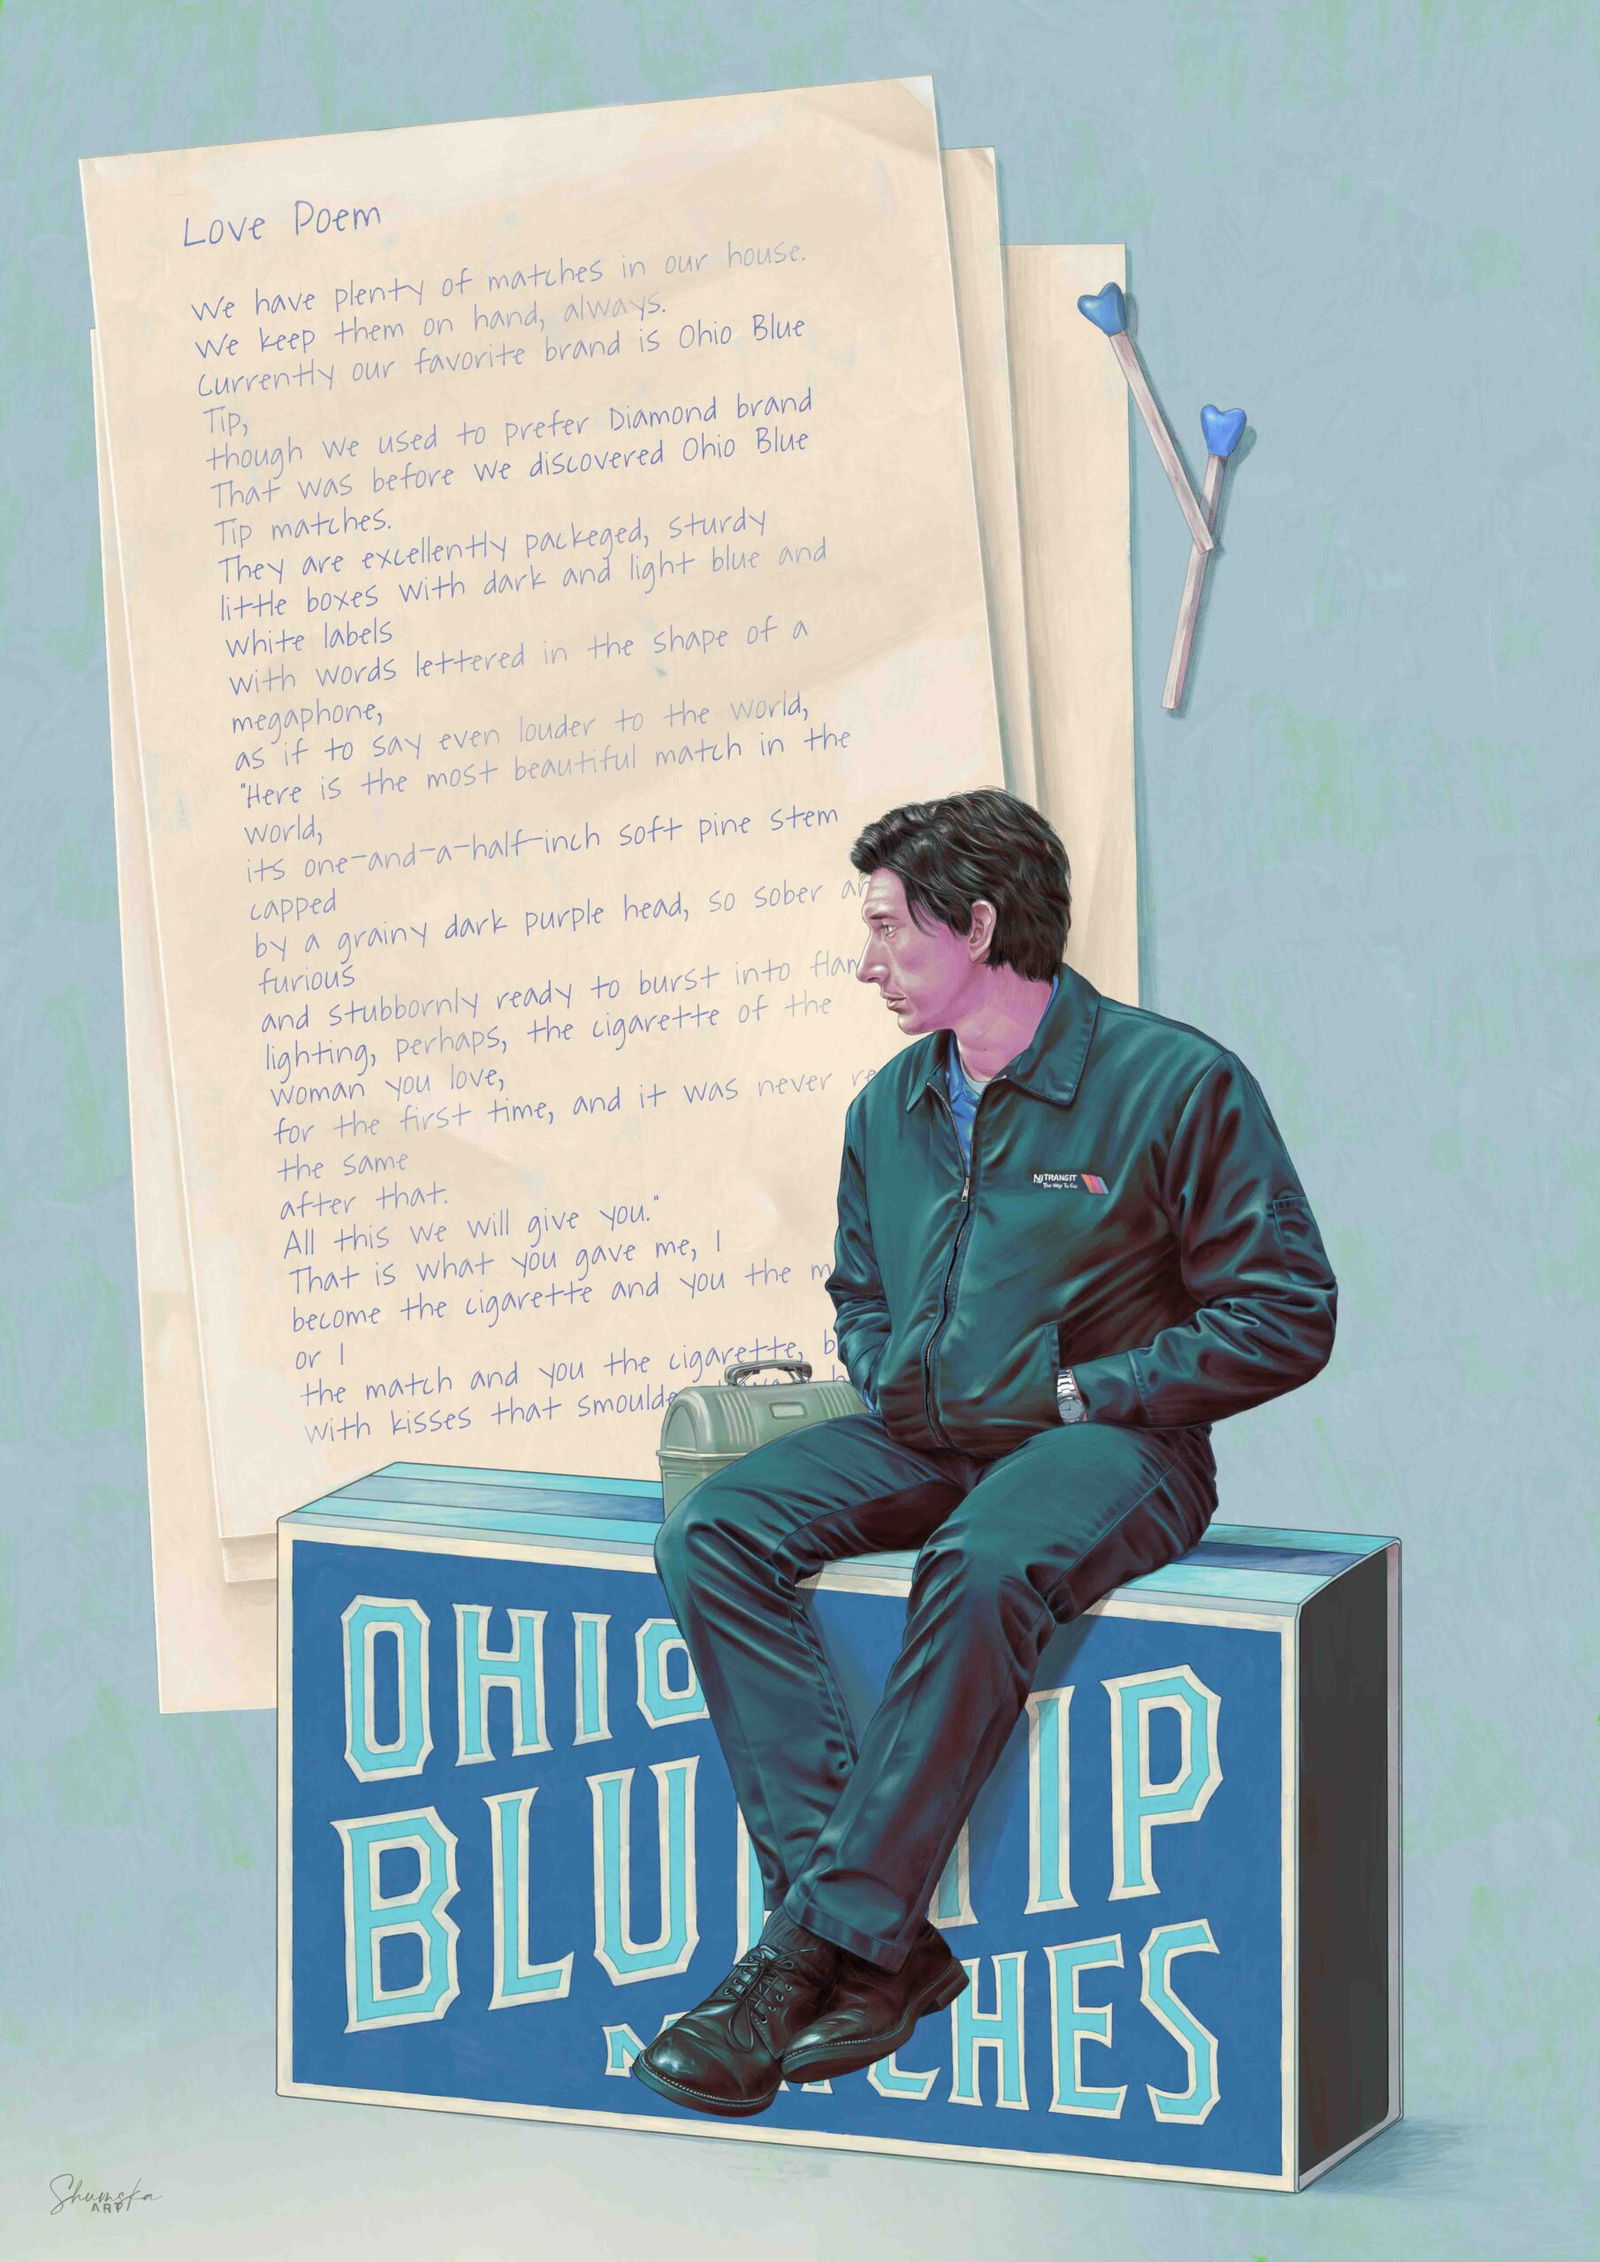 Love Poem
We have plenty of matches in our house.
We keep them on hand, always.
Currently our favorite brand is Ohio Blue
Tip,
though we used to prefer Diamond brand
That was before we discovered Ohio Blue
Tip matches.
They are excellently packeged, sturdy
little boxes with dark and light blue and
white labels
with words lettered in the shape of a
megaphone,
as if to say even louder to the world,
"Here is the most beautiful match in the
world,
its one-and-a-half-inch soft pine stem
capped
by a grainy dark purple head, so sober
furious
and stubbornly ready to burst into
lighting, perhaps, the cigarette of the
woman you love,
for the first time, and it was never
the same
after that.
All this we will give you."
That is what you gave me, I
become the cigarette and you the
or I
the match and you the cigarette,
with kisses that
NJ TRANSIT
The Way To Go
OHIO
BLU TIP
CHES
Shumska
ART